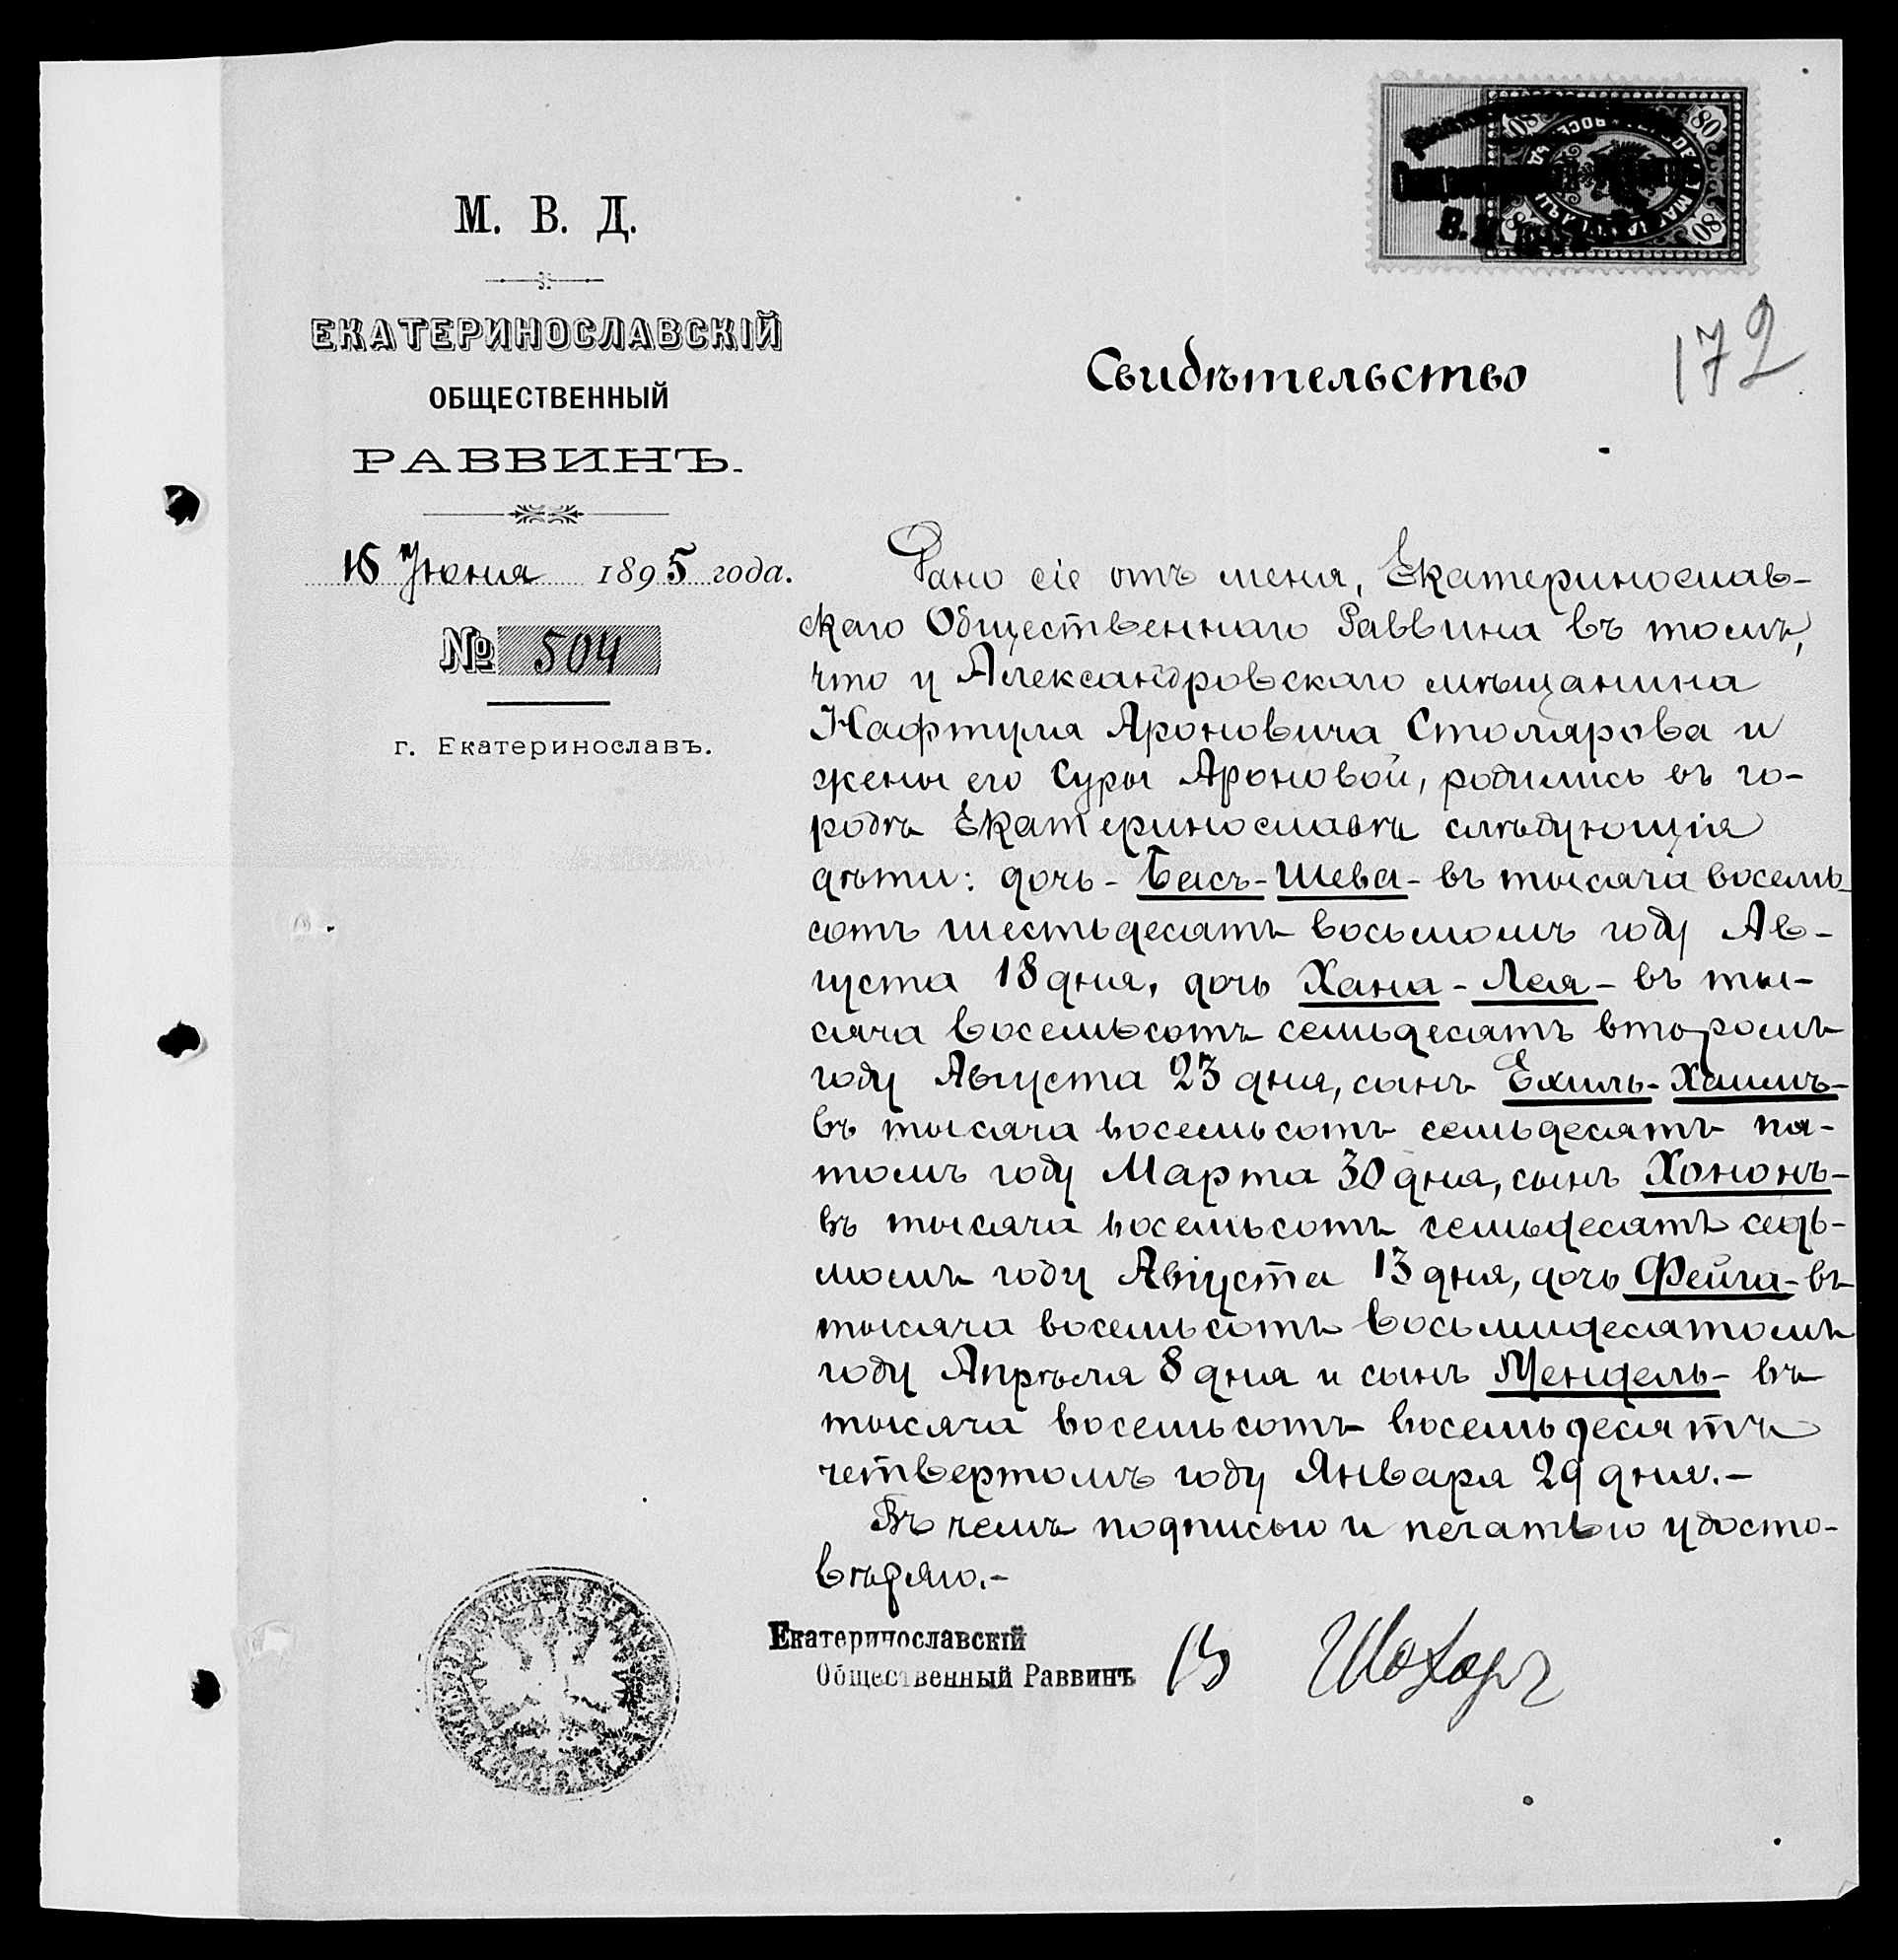 М. В. Д.
ЕКАТЕРИНОСЛАВСКІЙ
ОБЩЕСТВЕННЫЙ
РАВВИНЪ.
16 Іюня 1895 года.
№ 504
г. Екатеринославъ.
80 80
80
В.
172
Свидѣтельство
Дано сіе отъ меня, Екатеринослав-
скаго Общественнаго Раввина въ томъ,
что у Александровскаго мѣщанина
Нафтула Ароновича Столярова и
жены его Суры Ароновой, родились въ го-
родѣ Екатеринославѣ слѣдующія
дѣти: дочь - Басъ-Шева - въ тысяча восемь-
сотъ шестьдесятъ восьмомъ году Ав-
густа 18 дня, дочь Хана - Лея - въ ты-
сяча восемьсотъ семьдесятъ второмъ
году Августа 23 дня, сынъ Ехиль-Хаимъ-
въ тысяча восемьсотъ семьдесятъ пя-
томъ году Марта 30 дня, сынъ Хононъ-
въ тысяча восемьсотъ семьдесятъ седь-
момъ году Августа 13 дня, дочь Фейга - въ
тысяча восемьсотъ восьмидесятомъ
году Апрѣля 8 дня и сынъ Мендель - въ
тысяча восемьсотъ восемьдесятъ
четвертомъ году Января 29 дня.-
Въ чемъ подписью и печатью удосто-
вѣряю.-
Екатеринославскій
Общественный Раввинъ В Шохоръ